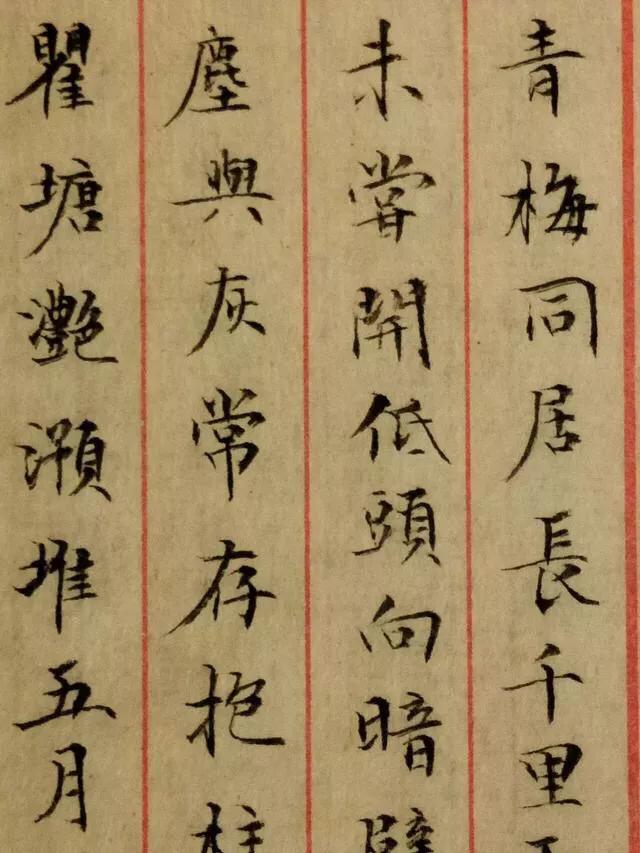 青梅同居長千里
未嘗開低頭向暗
塵與灰常存抱柱
瞿塘灔澦堆五月